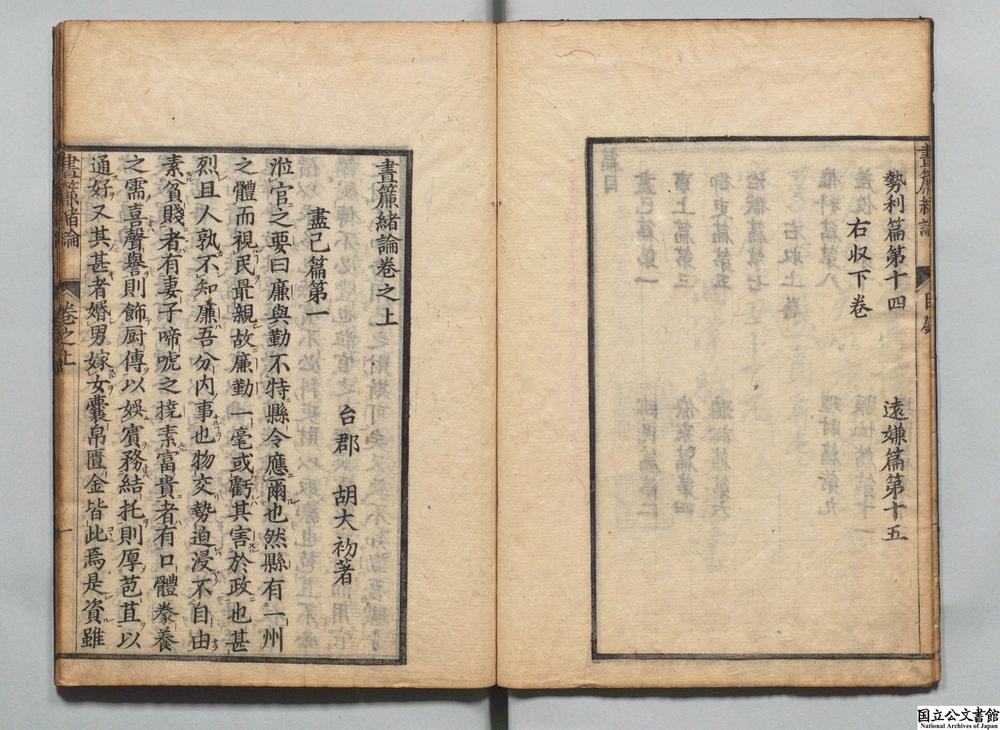 勢利篇第十四　遠嫌篇第十五
右収下卷
晝簾緒論
晝簾緒論卷之上
台郡　胡大初著
盡己篇第一
涖官之要曰廉與勤不特縣令應爾也然縣有一州
之體而視民最親故廉勤一毫或虧其害於政也甚
烈且人孰不知廉吾分内事也物交勢迫浸不自由
素貧賤者有妻子啼號之撓素富貴者有口體豢養
之需喜聲譽則飾厨傳以娛賓務結托則厚苞苴以
通好又其甚者婚男嫁女囊帛匱金皆此焉是資雖
晝簾緒論
卷之上
一
国立公文書館
National Archives of Japan